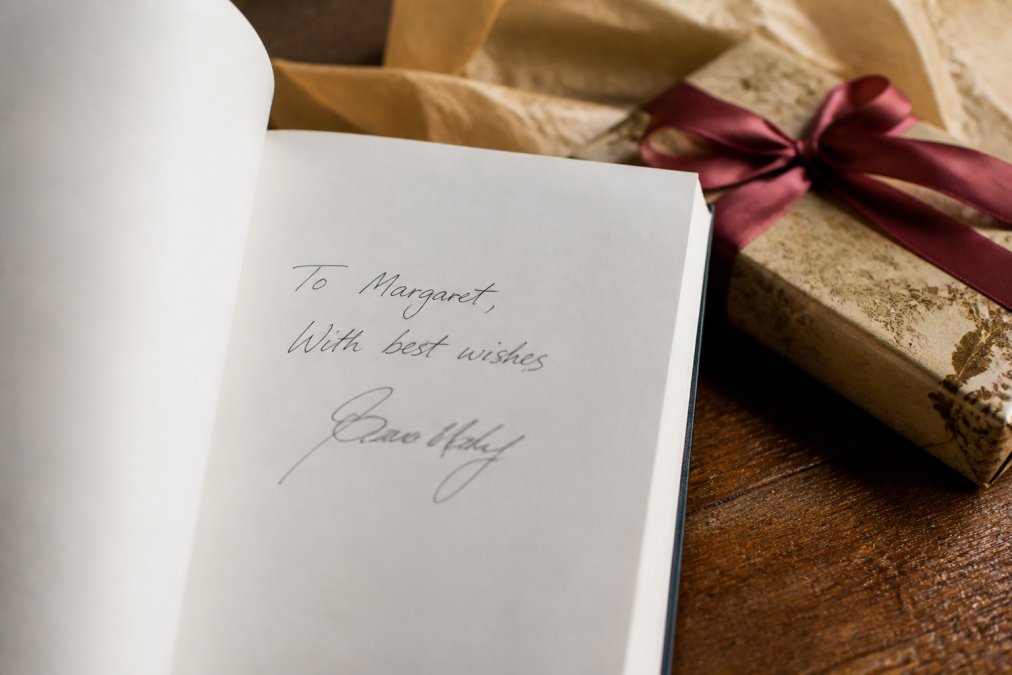 To Margaret,
With best wishes